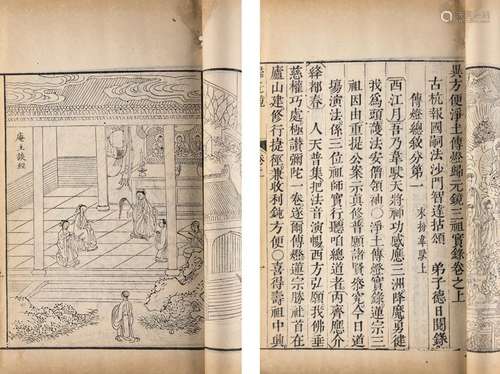 異方便淨土傳燈歸元鏡三祖實錄卷之上
古杭報國嗣法沙門智達拈頌 弟子德日閱錄
傳燈總敘分第一 末扮韋馱上
西江月吾乃韋馱天將神功感應三洲降魔勇徤
我為頭護法安僧領袖○淨土傳燈實錄蓮宗三
祖因由重提公案示真修普願諸賢參究今日道
場演法係三位祖師實行聽咱總道者丙齊應介
絳都春 人天普集把法音演暢西方弘願我佛垂
慈權巧處極讚彌陀一卷遂爾傳燈蓮宗勝社首在
廬山建修行捷徑兼收利鈍方便○喜得壽祖中興
庵主談經